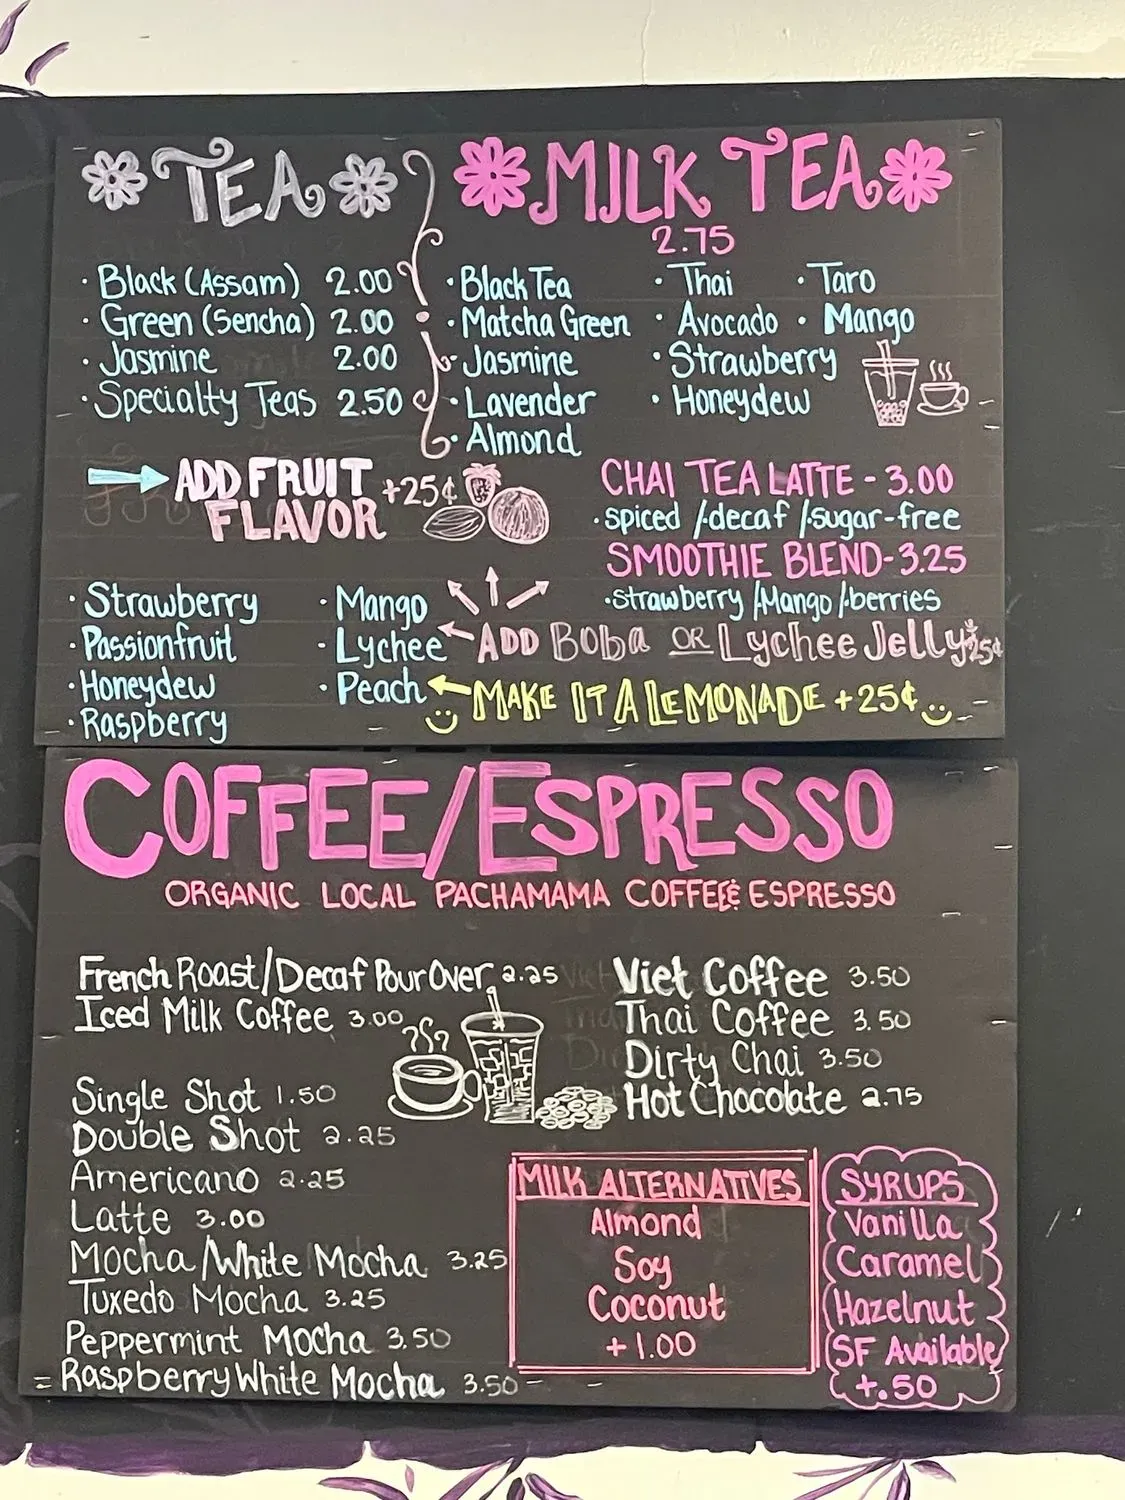 TEA
Black (Assam) 2.00
Green (Sencha) 2.00
Jasmine 2.00
Specialty Teas 2.50
MILK TEA
2.75
· Black Tea
· Matcha Green
· Jasmine
· Lavender
· Almond
· Thai
· Avocado
· Strawberry
· Honeydew
· Taro
· Mango
ADD FRUIT
FLAVOR +25¢
· Strawberry
· Passionfruit
· Honeydew
· Raspberry
· Mango
· Lychee
· Peach
CHAI TEA LATTE - 3.00
· spiced /·decaf /·sugar-free
SMOOTHIE BLEND - 3.25
· strawberry /·Mango /·berries
ADD Boba OR Lychee Jelly 25¢
MAKE IT A LEMONADE +25¢
COFFEE/ESPRESSO
ORGANIC LOCAL PACHAMAMA COFFEE & ESPRESSO
French Roast/Decaf Pour Over 2.25
Iced Milk Coffee 3.00
Single Shot 1.50
Double Shot 2.25
Americano 2.25
Latte 3.00
Mocha/White Mocha 3.25
Tuxedo Mocha 3.25
Peppermint Mocha 3.50
Raspberry White Mocha 3.50
Viet Coffee 3.50
Thai Coffee 3.50
Dirty Chai 3.50
Hot Chocolate 2.75
MILK ALTERNATIVES
Almond
Soy
Coconut
+1.00
SYRUPS
Vanilla
Caramel
Hazelnut
SF Available
+.50